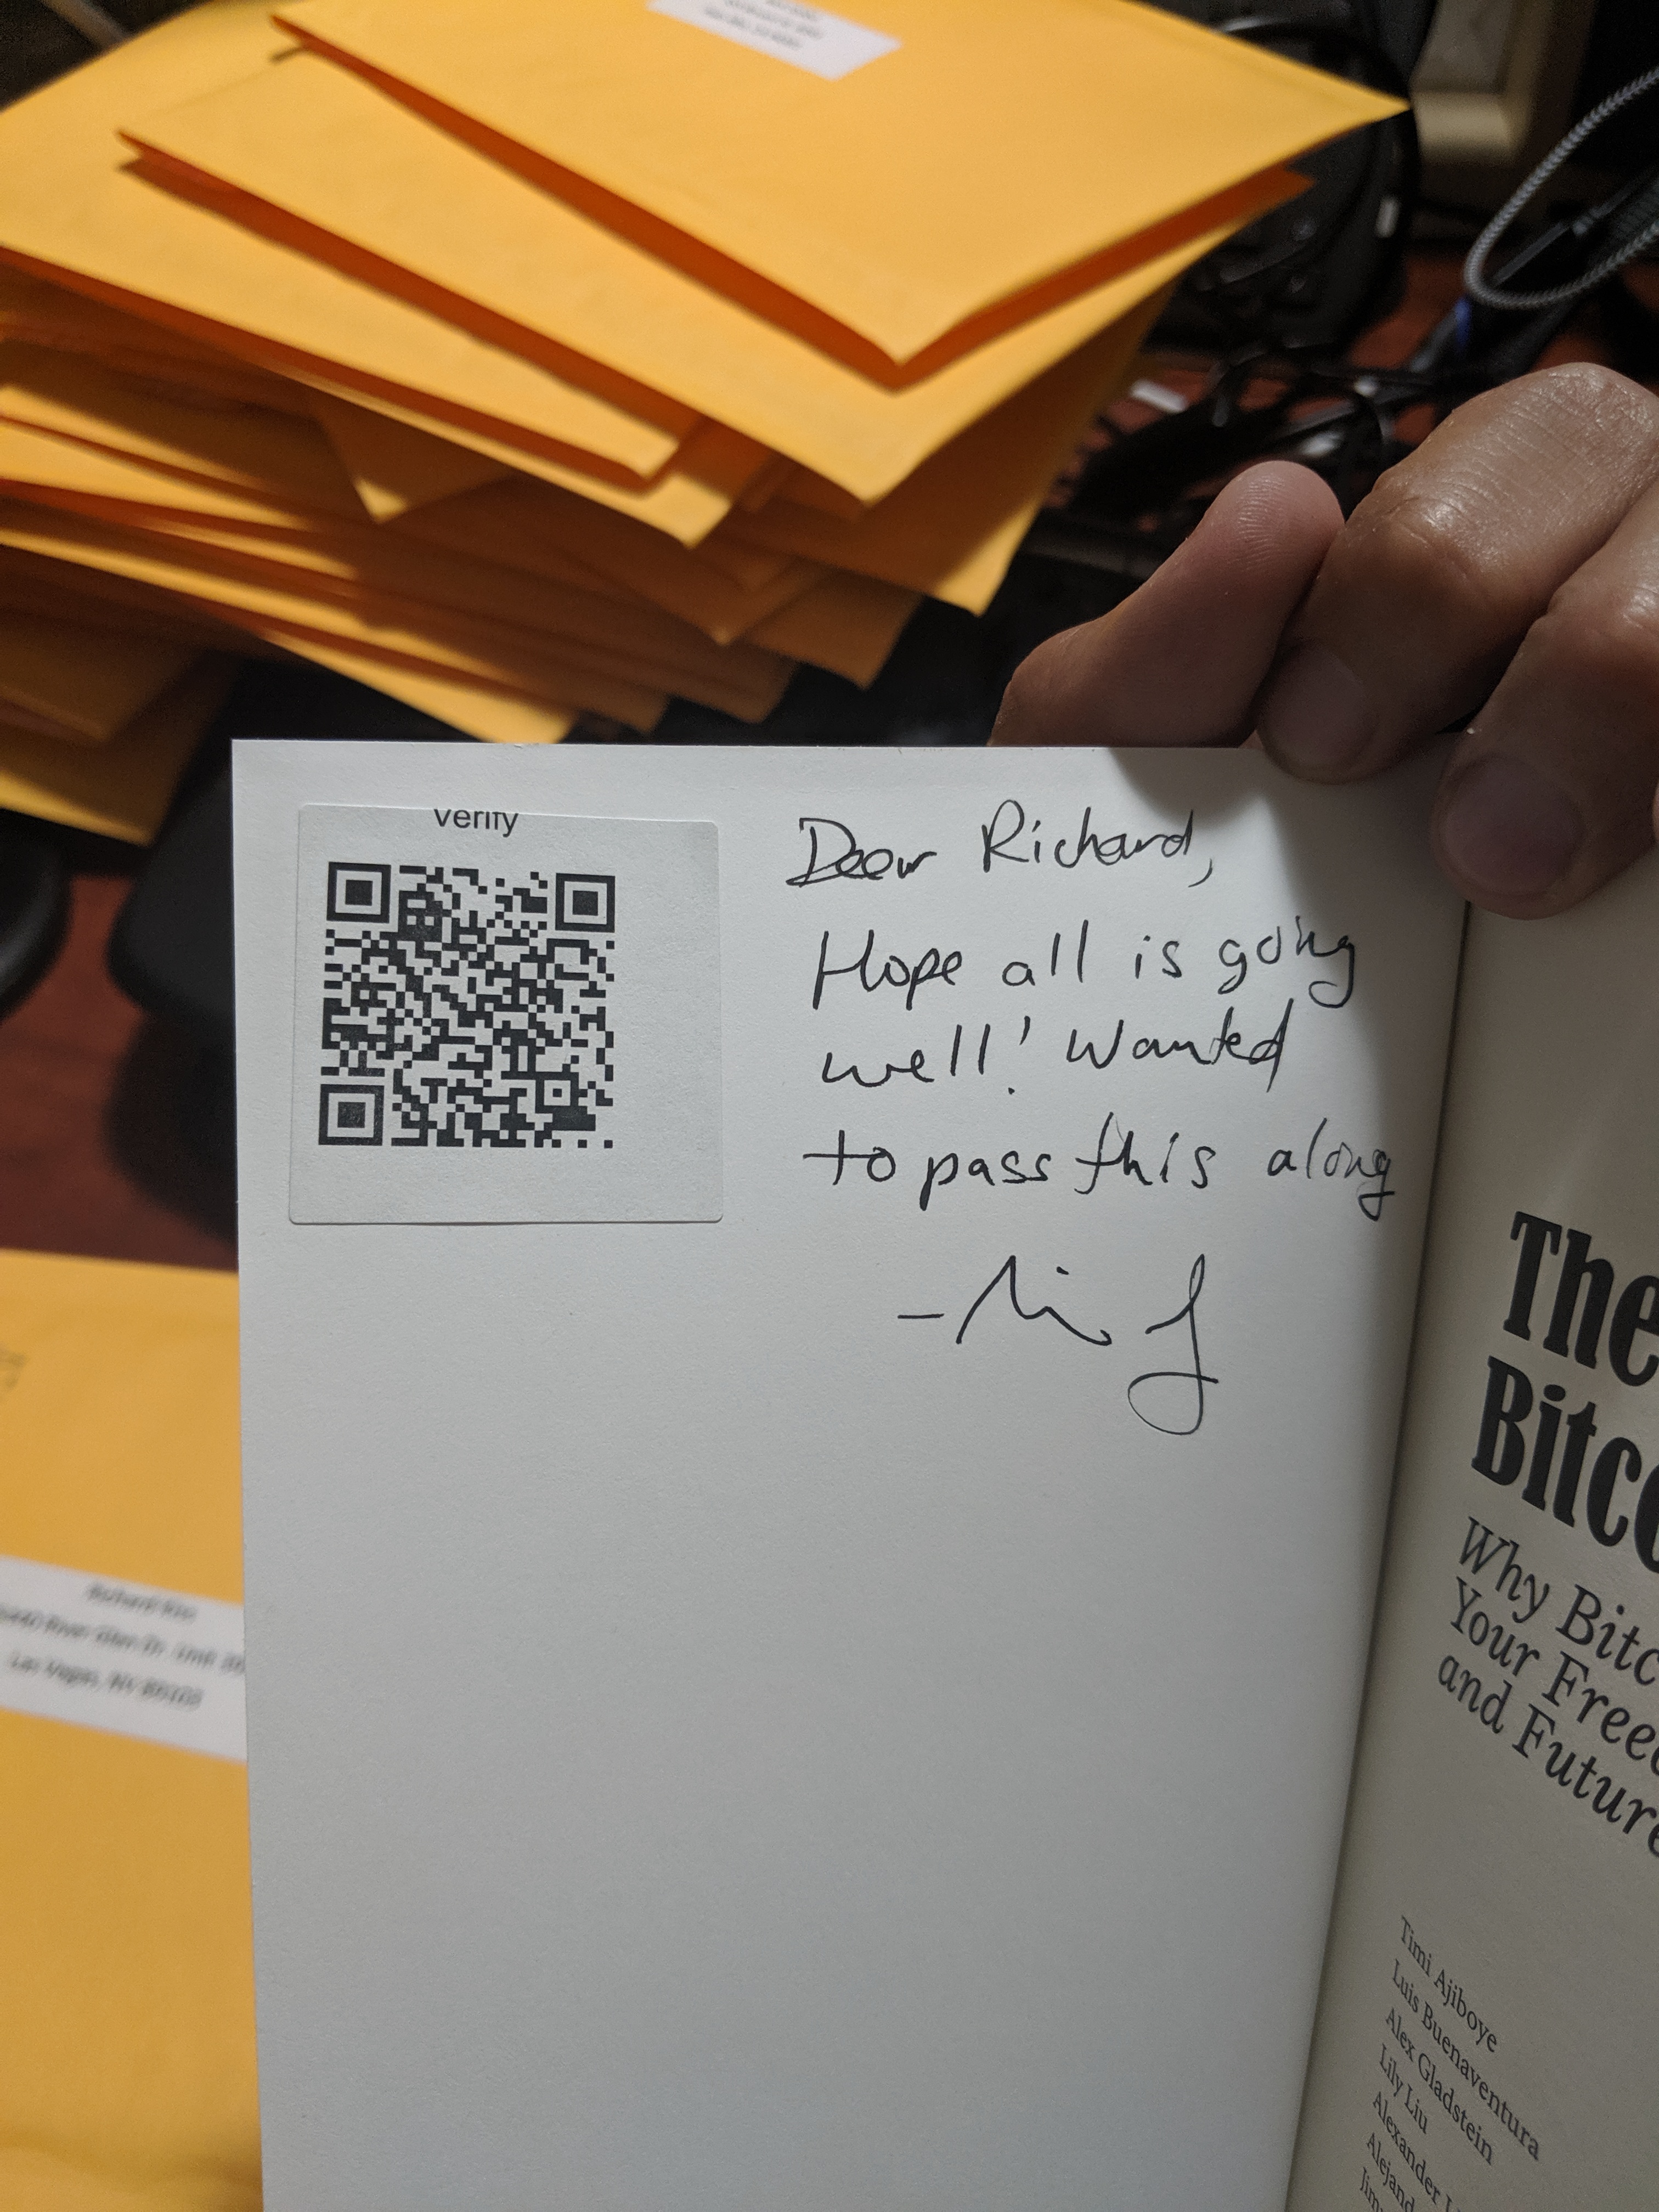 verify
Dear Richard,
Hope all is going
well! Wanted
to pass this along
The
Bitc
Why Bitc
Your Free
and Future
Timi Ajiboye
Luis Buenaventura
Alex Gladstein
Lily Liu
Alexander
Alejand
Jim
Las Vegas, NV